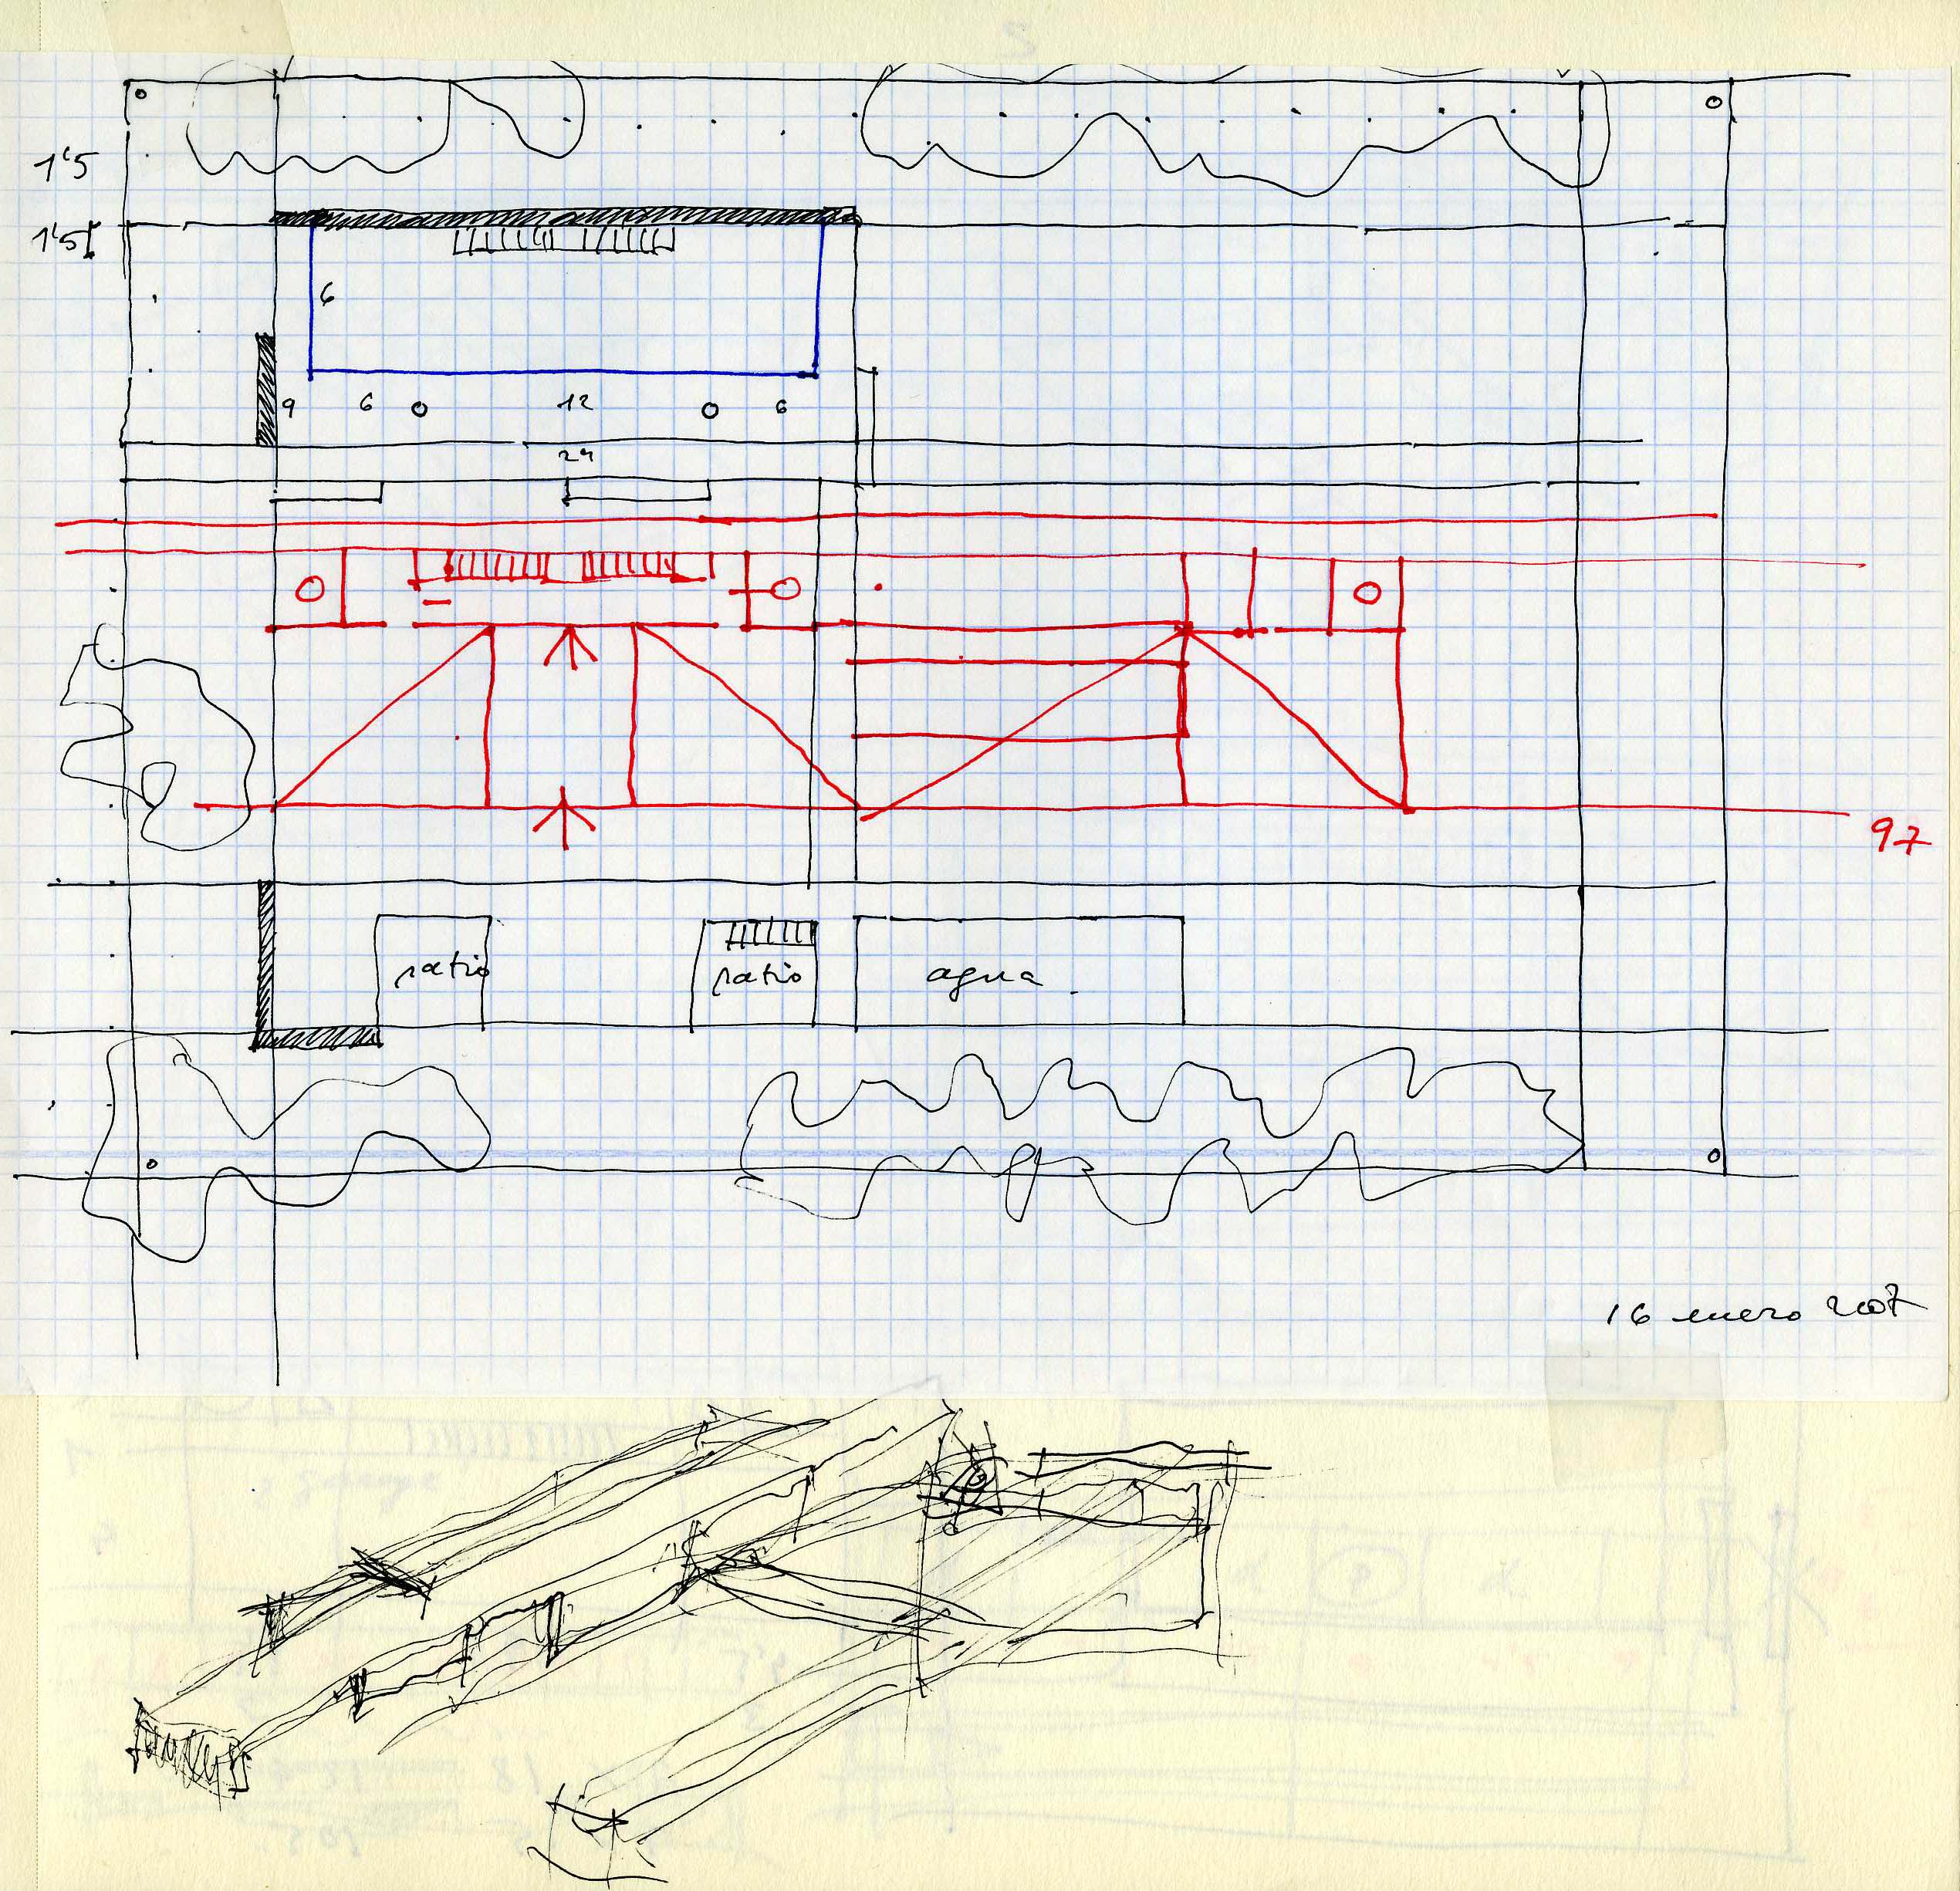 1'5
1'5
6
9 6 12 6
24
97
patio patio agua
16 enero 2007